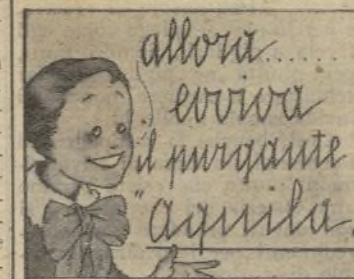 allora......
evviva
il purgante
"aquila.